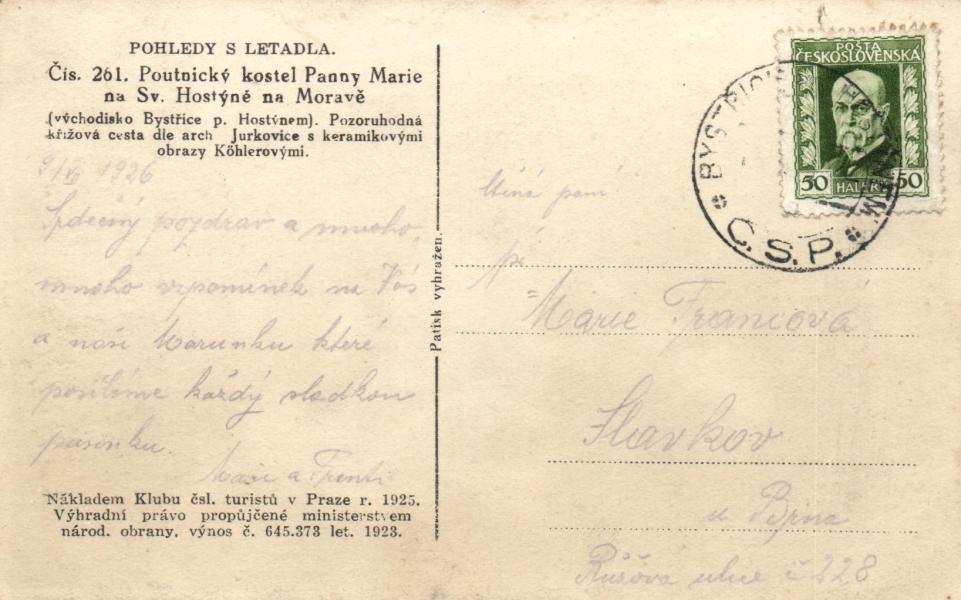 POHLEDY S LETADLA.
Čís. 261. Poutnický kostel Panny Marie
na Sv. Hostýně na Moravě
(východisko Bystřice p. Hostýnem). Pozoruhodná
křížová cesta dle arch Jurkovice s keramikovými
obrazy Köhlerovými.
1926
Srdečný pozdrav a mnoho,
mnoho vzpomínek na Vás
a naši Marunku které
posíláme každý sladkou
pusinku.
Marie a
Nákladem Klubu čsl. turistů v Praze r. 1925.
Výhradní právo propůjčené ministerstvem
národ. obrany, výnos č. 645.373 let. 1923.
Patisk vyhražen.
POŠTA
ČESKOSLOVENSKÁ
50 HALÉŘŮ 50
C.S.P.
paní
Marie Francová
Slavkov
u Brna
Růžova ulice č 228